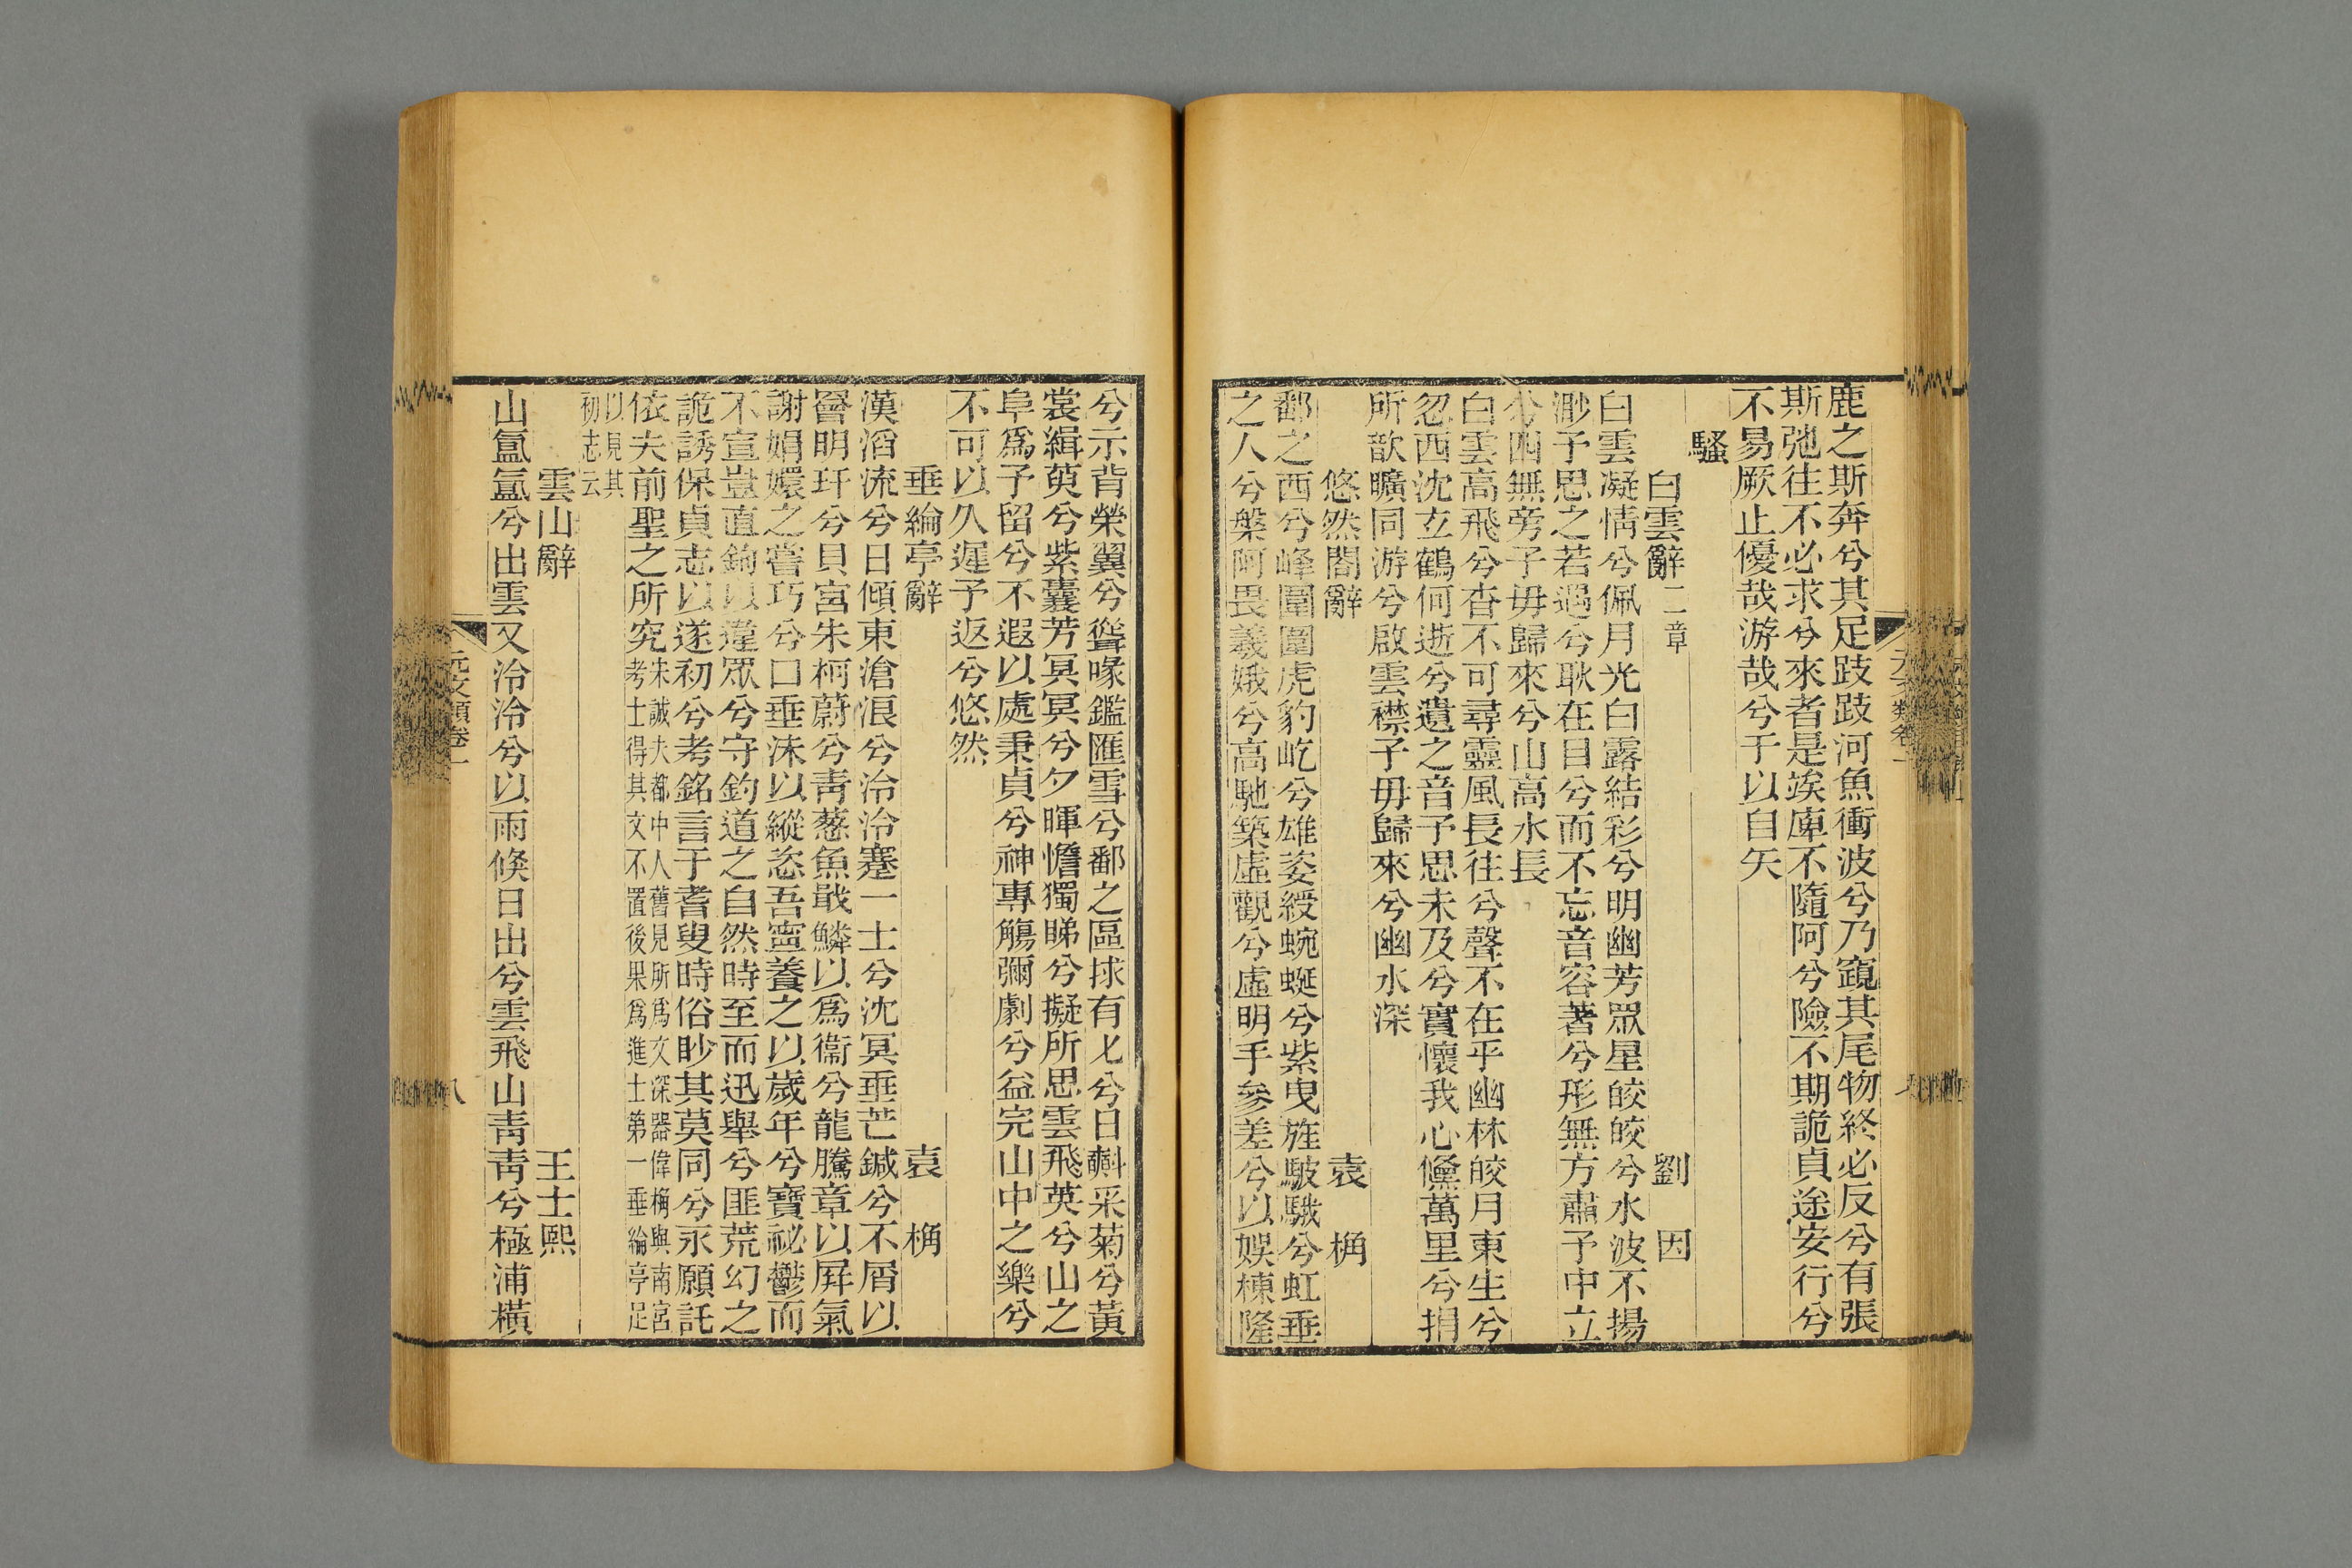 鹿之斯奔兮其足跂跂河魚衝波兮乃窺其尾物終必反兮有張
斯弛往不必求兮來者是竢庳不隨阿兮險不期詭貞途安行兮
不易厥止優哉游哉兮于以自矢
騷
白雲辭二章 劉因
白雲凝情兮佩月光白露結彩兮明幽芳眾星皎皎兮水波不揚
渺予思之若遇兮耿在目兮而不忘音容著兮形無方肅予中立
兮四無旁子毋歸來兮山高水長
白雲高飛兮杳不可尋靈風長往兮聲不在乎幽林皎月東生兮
忽西沈玄鶴何逝兮遺之音予思未及兮實懷我心儻萬里兮捐
所歆曠同游兮啟雲襟子毋歸來兮幽水深
悠然閣辭 袁桷
鄱之西兮峰圍圍虎豹屹兮雄姿綬蜿蜒兮紫曳旌駊騀兮虹垂
之人兮槃阿畏羲娥兮高馳築虛觀兮虛明手參差兮以娛棟隆
兮示背榮翼兮聳喙鑑匯雪兮鄱之區捄有匕兮日斟采菊兮黃
裳緝萸兮紫囊芳冥冥兮夕暉憺獨睇兮擬所思雲飛英兮山之
阜爲予留兮不遐以處秉貞兮神專觴彌劇兮益完山中之樂兮
不可以久遲予返兮悠然
垂綸亭辭 袁桷
漢滔流兮日傾東滄浪兮泠泠蹇一士兮沈冥垂芒鍼兮不屑以
罾明玕兮貝宮朱柯蔚兮青蔥魚戢鱗以爲衞兮龍騰章以屏氣
謝娟嬛之嘗巧兮口垂沫以縱恣吾寧養之以歲年兮寶祕鬱而
不宣豈直鉤以違眾兮守釣道之自然時至而迅舉兮匪荒幻之
詭誘保貞志以遂初兮考銘言于耆叟時俗眇其莫同兮永願託
依夫前聖之所究宋誠夫都中人舊見所爲文深器偉桷與南宮
考士得其文不置後果爲進士第一垂綸亭足
以見其
初志云
雲山辭 王士熙
山氳氳兮出雲又泠泠兮以雨倏日出兮雲飛山青青兮極浦橫
元文類卷一
八